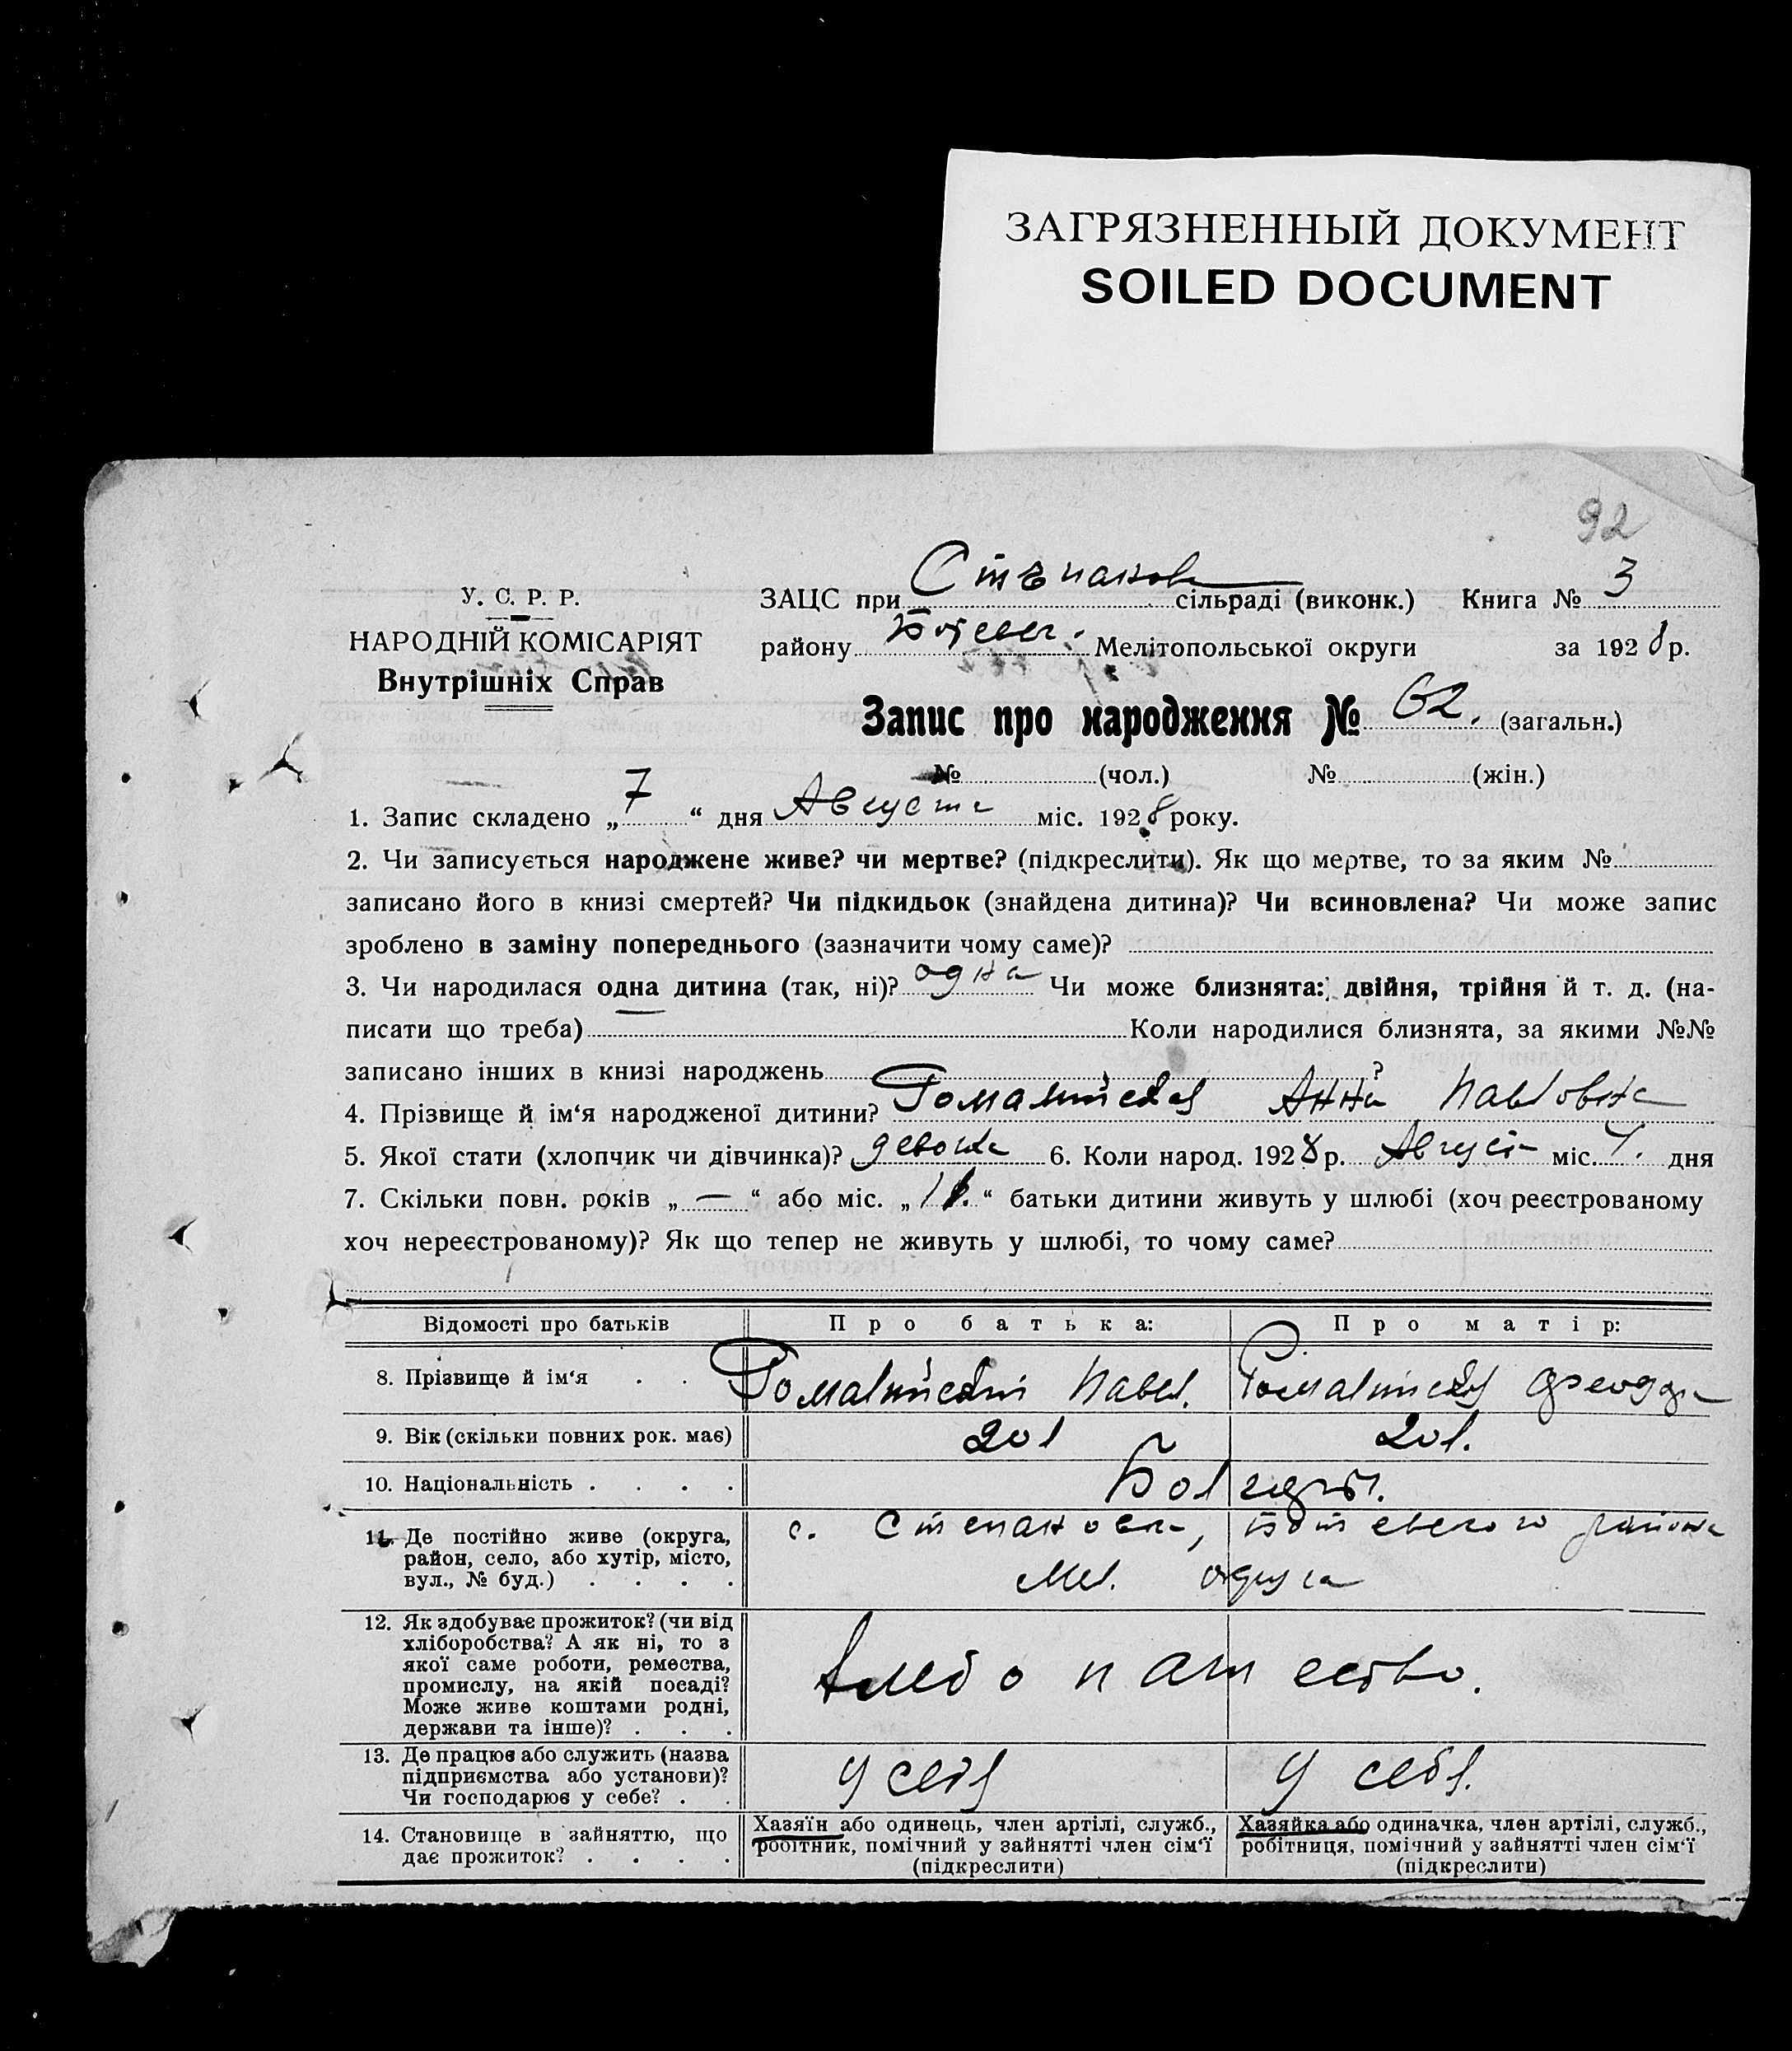 ЗАГРЯЗНЕННЫЙ ДОКУМЕНТ
SOILED DOCUMENT
92
У. С. Р. Р.
НАРОДНІЙ КОМІСАРІЯТ
Внутрішніх Справ
ЗАЦС при Степанов сільраді (виконк.) Книга № 3
району Мелітопольської округи за 1928 р.
Запис про народження № 62. (загальн.)
№ (чол.) № (жін.)
1. Запис складено „ 7 “ дня Августа міс. 1928 року.
2. Чи записується народжене живе? чи мертве? (підкреслити). Як що мертве, то за яким №
записано його в книзі смертей? Чи підкидьок (знайдена дитина)? Чи всиновлена? Чи може запис
зроблено в заміну попереднього (зазначити чому саме)?
3. Чи народилася одна дитина (так, ні)? одна Чи може близнята: двійня, трійня й т. д. (на-
писати що треба) Коли народилися близнята, за якими №№
записано інших в книзі народжень ?
4. Прізвище й ім‘я народженої дитини? Анна Павловна
5. Якої стати (хлопчик чи дівчинка)? 6. Коли народ. 1928 р. Август міс. дня
7. Скільки повн. років „ — “ або міс. „ “ батьки дитини живуть у шлюбі (хоч реєстрованому
хоч нереєстрованому)? Як що тепер не живуть у шлюбі, то чому саме?
Відомості про батьків Про батька: Про матір:
8. Прізвище й ім‘я . . Павел.
9. Вік (скільки повних рок. має) 20 л 20 л.
10. Національність . . . . Болгары.
11. Де постійно живе (округа,
район, село, або хутір, місто,
вул., № буд.) . . . .
с. Степановка, Ботиевского района
Мел. округа
12. Як здобуває прожиток? (чи від
хліборобства? А як ні, то з
якої саме роботи, ремества,
промислу, на якій посаді?
Може живе коштами родні,
держави та інше)? . . .
Хлебопашество.
13. Де працює або служить (назва
підприємства або установи)?
Чи господарює у себе? . .
у себя у себя.
14. Становище в зайняттю, що
дає прожиток? . . . .
Хазяїн або одинець, член артілі, служб.,
робітник, помічний у зайнятті член сім‘ї
(підкреслити)
Хазяйка або одиначка, член артілі, служб.,
робітниця, помічний у зайнятті член сім‘ї
(підкреслити)